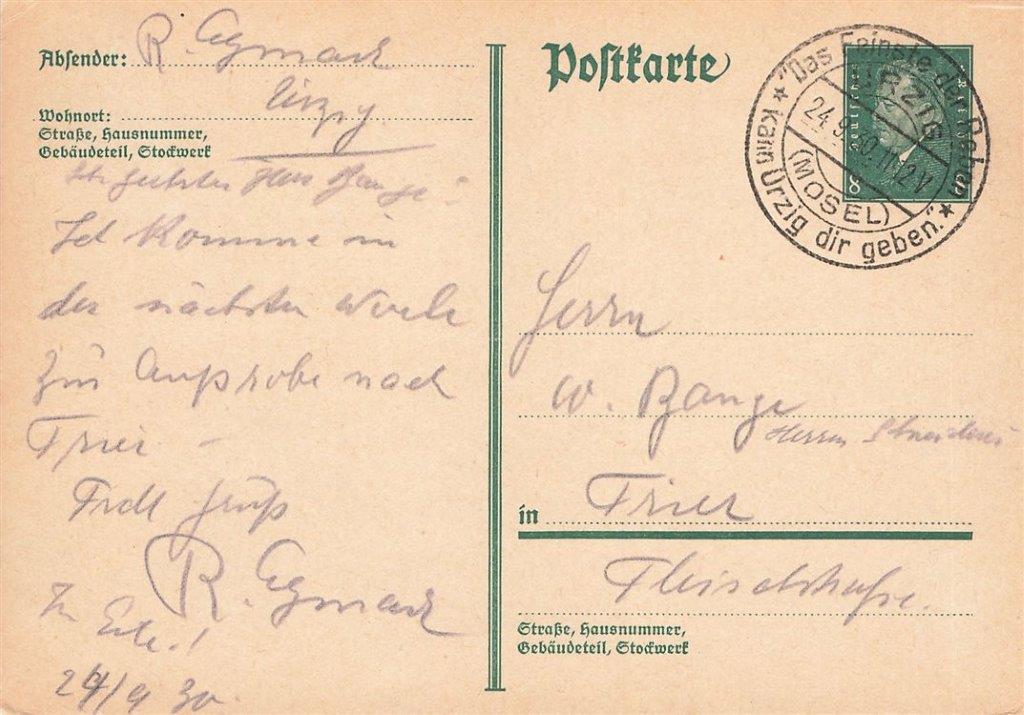 Absender: R. Eymael
Wohnort: Ürzig
Straße, Hausnummer,
Gebäudeteil, Stockwerk
Sehr geehrter Herr Bange!
Ich komme in
der nächsten Woche
zur Anprobe nach
Trier –
Frdl Gruß
R. Eymael
In Eile!
24/9 30.
Postkarte
"Das Feinste der Reben
kann Ürzig dir geben."
ÜRZIG
24.9.30.11-12V.
(MOSEL)
Deutsches Reich
8
Herrn
W. Bange
Herren Schneiderei
in Trier
Fleischstraße.
Straße, Hausnummer,
Gebäudeteil, Stockwerk